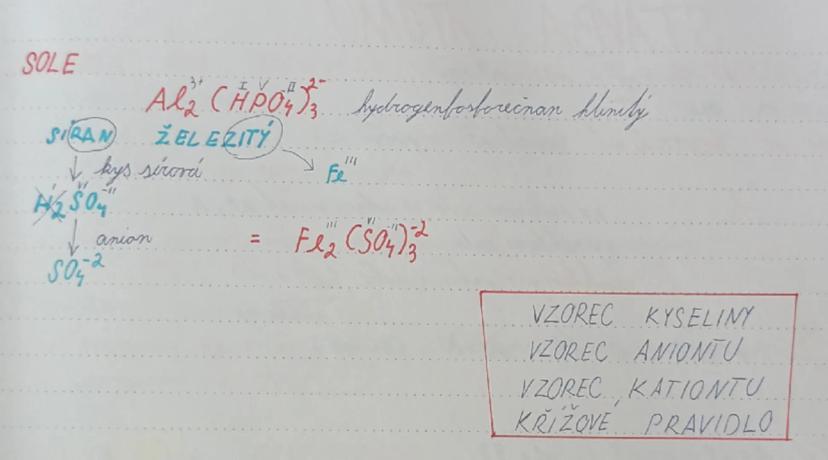 SOLE
Al₂³⁺ (HᴵPⱽO₄ᴵᴵ)₃²⁻ hydrogenfosforečnan hlinitý
SÍRAN ŽELEZITÝ
kys sírová Feᴵᴵᴵ
H₂ᴵSⱽᴵO₄⁻ᴵᴵ
anion = Fe₂ᴵᴵᴵ(SⱽᴵO₄ᴵᴵ)₃⁻²
SO₄⁻²
VZOREC KYSELINY
VZOREC ANIONTU
VZOREC KATIONTU
KŘÍŽOVÉ PRAVIDLO